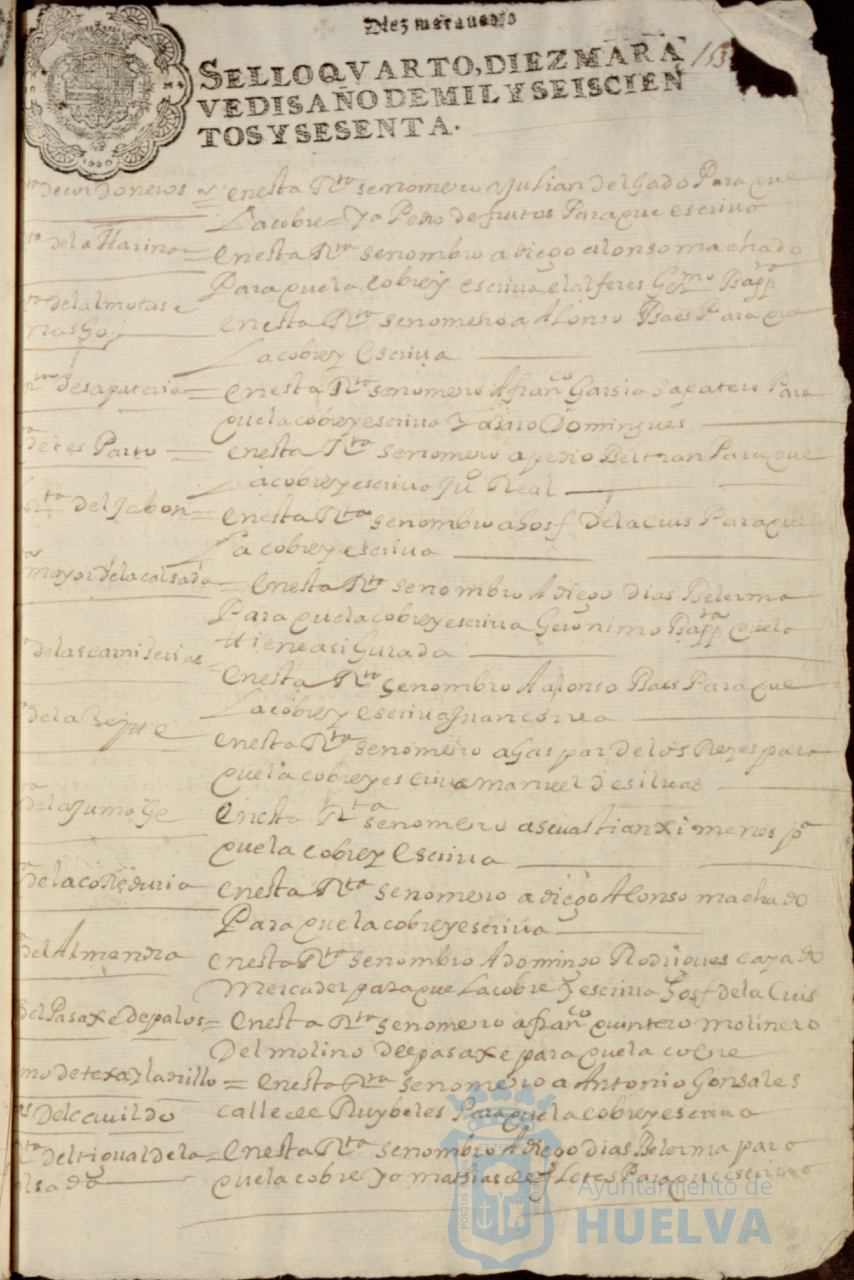 Diez maravedis
SELLO QVARTO, DIEZ MARA
VEDIS AÑO DE MIL Y SEISCIEN
TOS Y SESENTA.
153
1660
de cordoneros = enesta Rta senomero Julian delgado Para que
La cobre = Yo Pedro de frutos Para que escriva
de la Harina = enesta Rta senombro a diego alonso machado
Para quela cobre y escriva el alferes Germo Bapta
del almotase
enesta Rta senomero a Alonso Baes Para que
La cobre y Escriva
de sapateria = enesta Rta senomero A franco Garsia sapatero Para
quela cobre y escriva Domingues
enesta Rta senomero a pedro Beltran Para que
La cobre y escriva Ju Real
Rta del Jabon = enesta Rta senombro a Josf de la Cruis Para que
La cobre y escriva
mayor de la calsada = enesta Rta senombro A diego dias Belerma
Para quela cobre y escriva Geronimo Bapta quela
tiene asigurada
de las carniserias = enesta Rta senombro A alonso Baes Para que
La cobre y escriva Juan correa
de la
enesta Rta senomero a Gaspar de los Reyes para
quela cobre y escriva manuel de silvas
enesta Rta senomero a sevastian ximenes pa
quela cobre y Escriva
de la coReduria enesta Rta senomero a diego Alonso machado
Para quela cobre y escriva
del Almendra enesta Rta senombro A domingo Rodrigues
Mercader para que La cobre y escriva Josf de la Cruis
del Pasaxe de palos = enesta Rta senomero a franco quintero molinero
Del molino del pasaxe para quela cobre
de texa y ladrillo = enesta Rta senomero a Antonio Gonsales
del cavildo calle de Ruybeles Para quela cobre y escriva
Rta del = enesta Rta senombro A diego dias Belerma para
quela cobre Yo mathias de Para que escriva
Ayuntamiento de
HUELVA